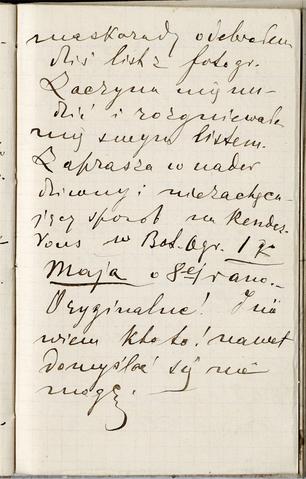 maskarady odebrałem
dziś list z fotogr.
Zaczyna mię nu-
dzić i rozgniewała
mię swym listem.
Zaprasza w nader
dziwny i niezachęca-
jący sposób na Rendez-
Vous w Bot. Ogr. 17
Maja o 8ej rano.–
Oryginalne! I nie
wiem kto to! nawet
domyśleć się nie
mogę